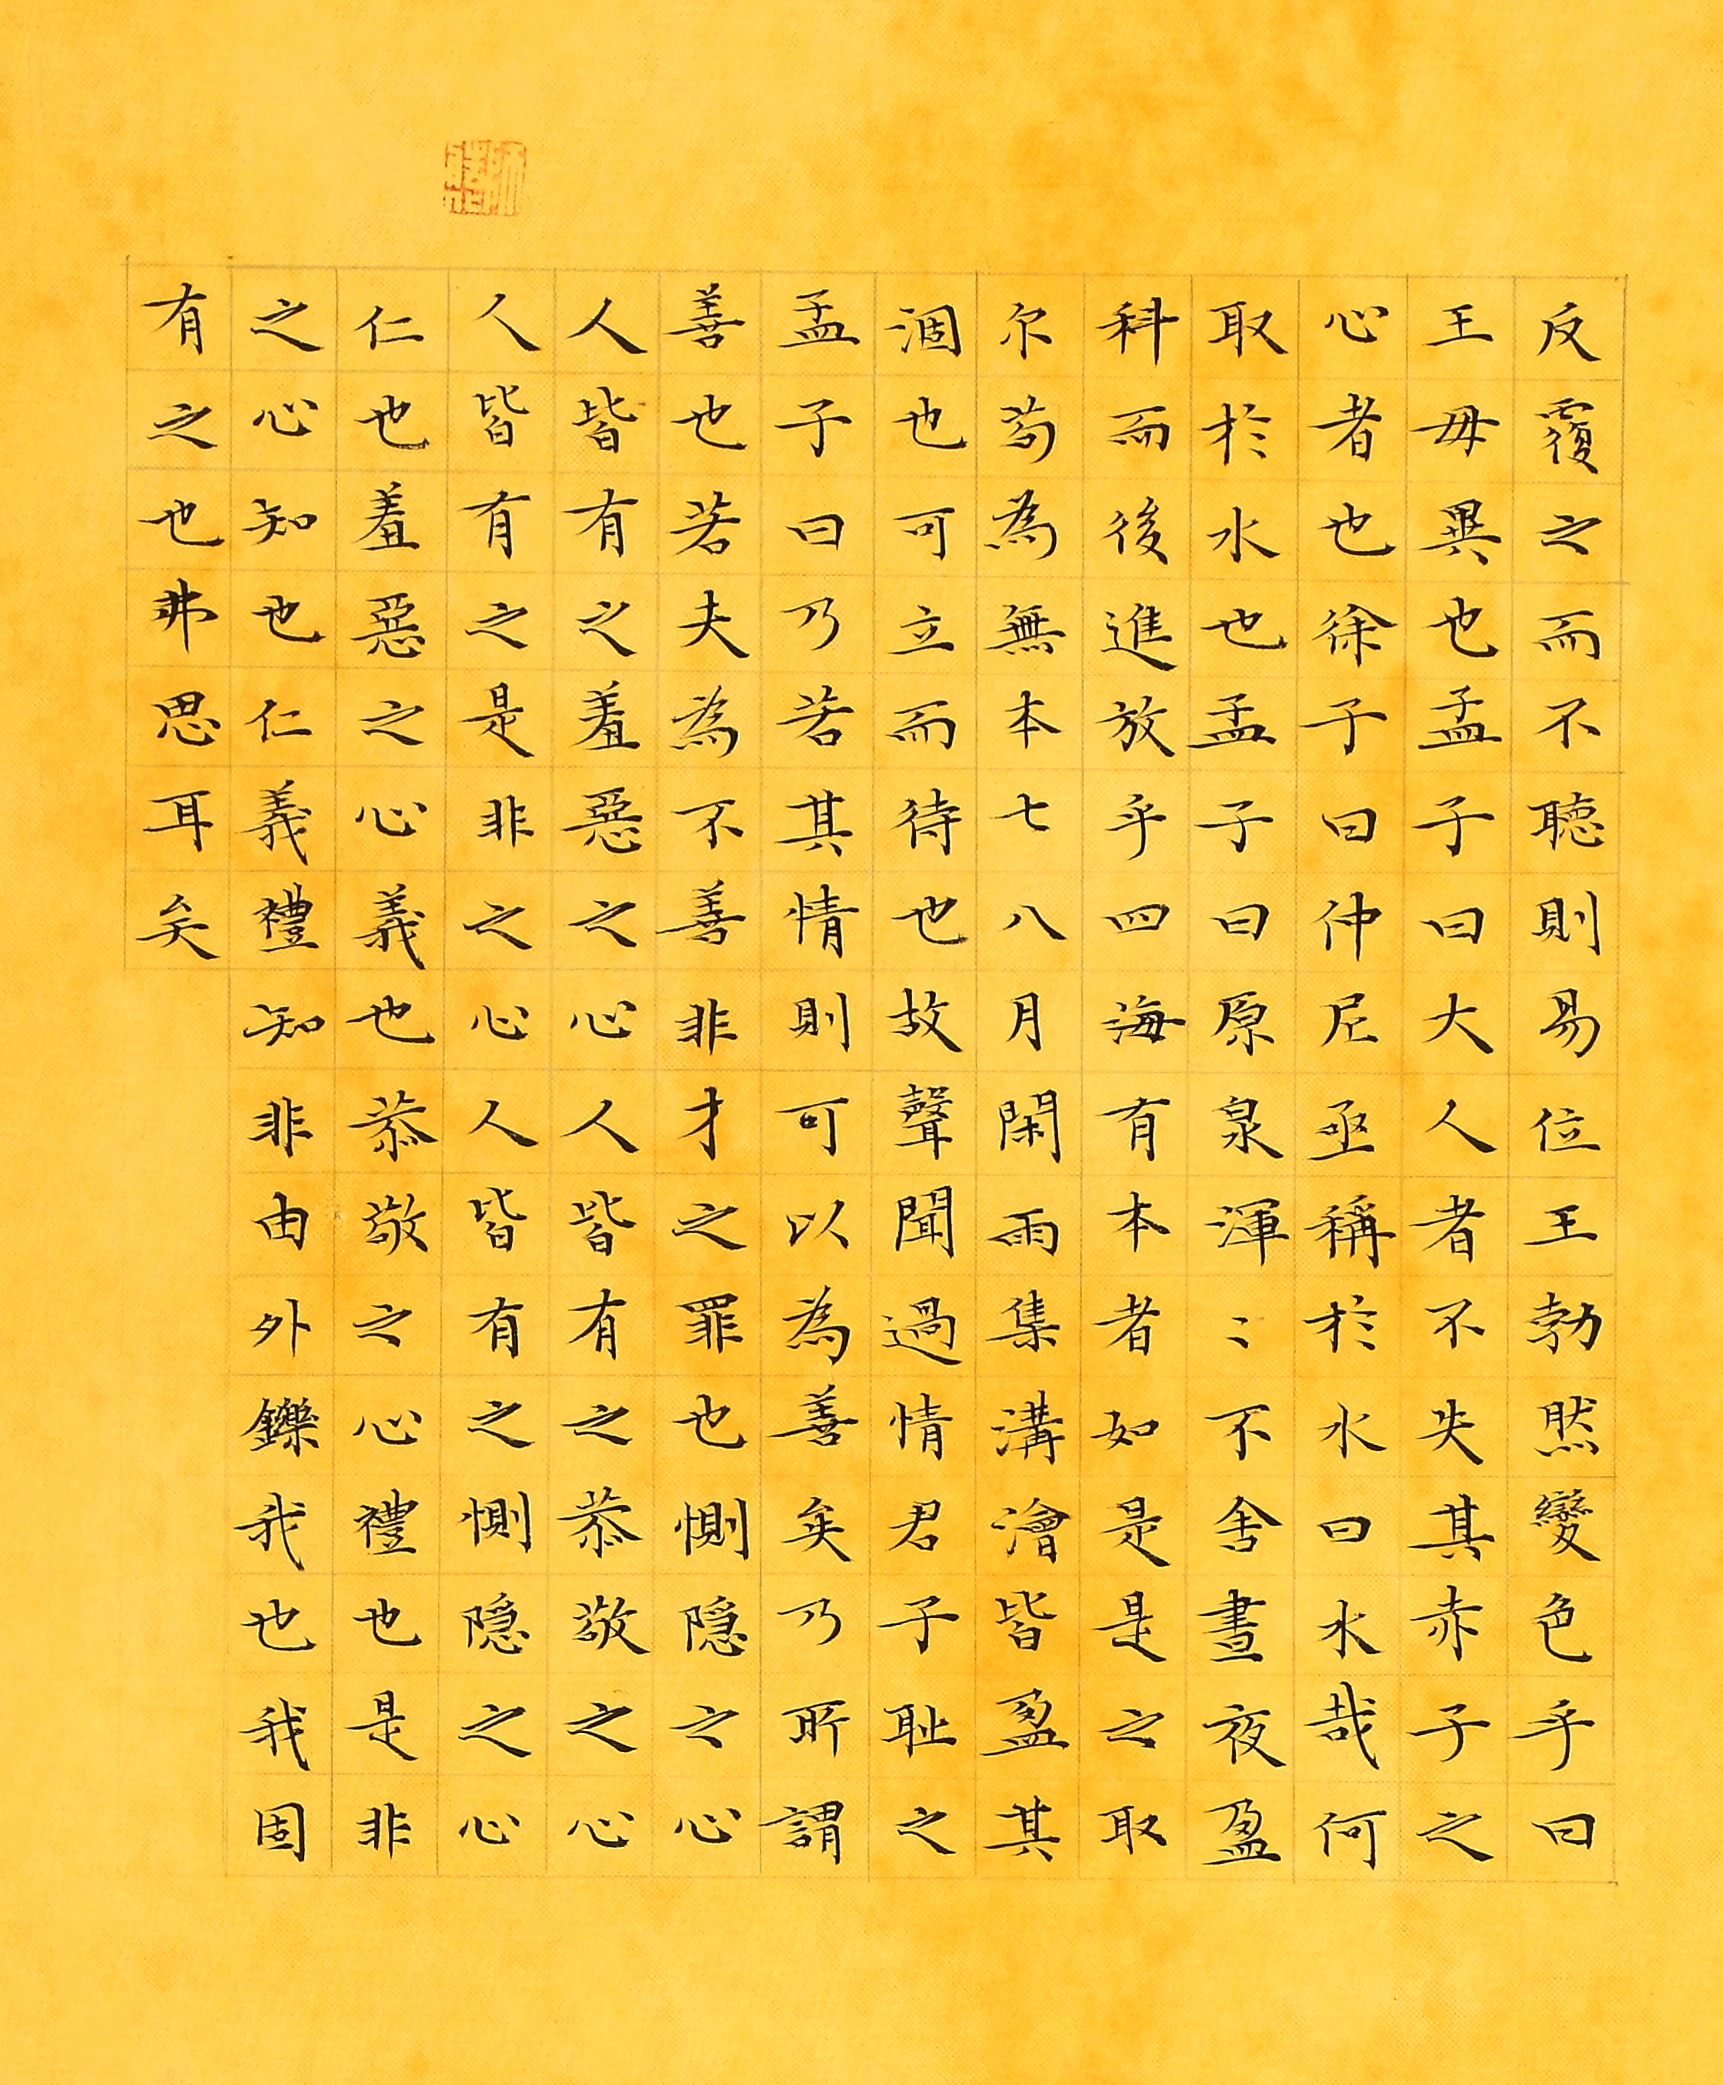 反覆之而不聴則易位王勃然變色乎曰
王毋異也孟子曰大人者不失其赤子之
心者也徐子曰仲尼亟稱於水曰水哉何
取於水也孟子曰原泉渾〻不舍晝夜盈
科而後進放乎四海有本者如是是之取
尔茍為無本七八月閑雨集溝澮皆盈其
涸也可立而待也故聲聞過情君子耻之
孟子曰乃若其情則可以為善矣乃所謂
善也若夫為不善非才之罪也惻隐之心
人皆有之羞惡之心人皆有之恭敬之心
人皆有之是非之心人皆有之惻隐之心
仁也羞惡之心義也恭敬之心禮也是非
之心知也仁義禮知非由外鑠我也我固
有之也弗思耳矣